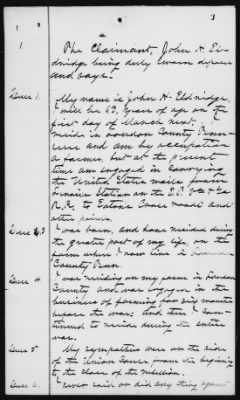 1
The Claimant, John H. El-
dridge being duly sworn deposes
and says:
Ques 1. My name is John H. Eldridge,
will be 62 years of age on the
first day of March next. I
reside in Loudon County Tenn-
and am by occupation
a farmer, but at the present
time am engaged in conveying
the United States mails from
Station on the
R.R. to Eatons Cross roads and
other points.
Ques 2&3 I was born, and have resided during
the greater part of my life, on the
farm where I now live in
County Tenn.
Ques 4. I was residing on my farm in Loudon
County and was engaged in the
business of farming for six months
before the war; and then I con-
tinued to reside during the entire
war.
Ques 5. My sympathies were on the side
of the Union cause from the begining
to the close of the rebellion.
Ques 6. I never said or did any thing against